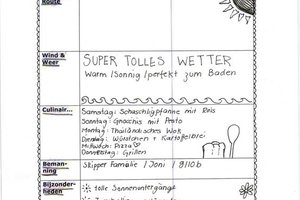 Route
Wind & Weer
SUPER TOLLES WETTER
Warm /Sonnig /perfekt zum Baden
Culinair...
Samstag: Schaschlikpfanne mit Reis
Sonntag: Gnocchis mit Pesto
Montag: Thailändisches Wok
Dienstag: Würstchen + Kartoffelbrei
Mittwoch: Pizza ♡
Donnerstag: Grillen
Beman-
ning
Skipper Familie / Joni /
Bijzonder-
heden
tolle Sonnenuntergänge